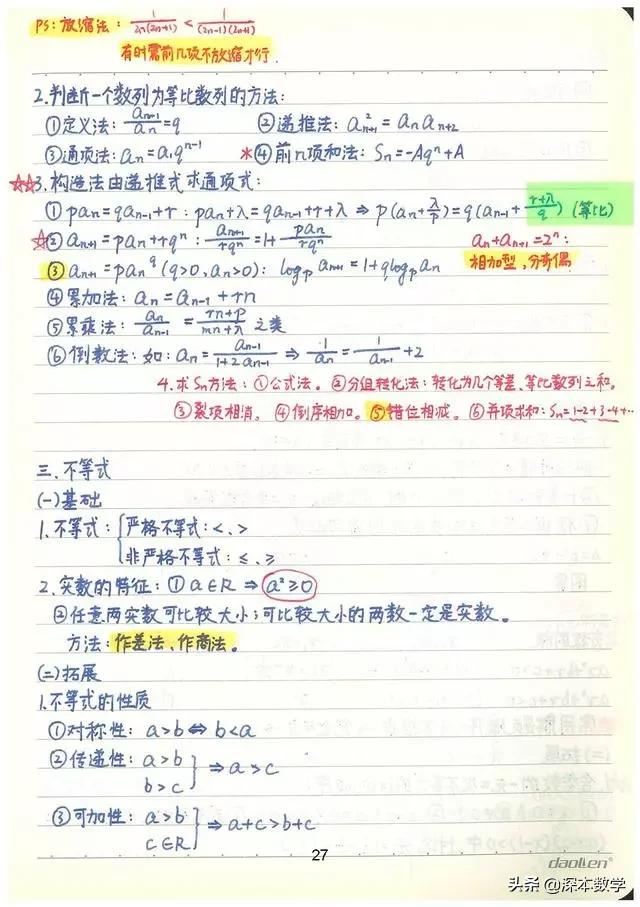 PS：放缩法：1/2n(2n+1) < 1/(2n-1)(2n+1)
有时需前几项不放缩才行.
2.判断一个数列为等比数列的方法：
①定义法：aₙ₊₁/aₙ=q ②递推法：a²ₙ₊₁=aₙaₙ₊₂
③通项法：aₙ=a₁qⁿ⁻¹ *④前n项和法：Sₙ=-Aqⁿ+A
☆☆3.构造法由递推式求通项式：
①paₙ=qaₙ₋₁+r：paₙ+λ=qaₙ₋₁+r+λ ⇒ p(aₙ+λ/p)=q(aₙ₋₁+(r+λ)/q) (等比)
☆②aₙ₊₁=paₙ+rqⁿ：aₙ₊₁/rqⁿ=1+paₙ/rqⁿ aₙ+aₙ₊₁=2ⁿ：
③aₙ₊₁=paₙ^q (q>0,aₙ>0)：logₚaₙ₊₁=1+qlogₚaₙ 相加型，分奇偶
④累加法：aₙ=aₙ₋₁+rn
⑤累乘法：aₙ/aₙ₋₁=(rn+p)/(mn+λ)之类
⑥倒数法：如：aₙ=aₙ₋₁/(1+2aₙ₋₁) ⇒ 1/aₙ=1/aₙ₋₁+2
4.求Sₙ方法：①公式法。②分组转化法：转化为几个等差、等比数列之和。
③裂项相消。④倒序相加。⑤错位相减。⑥并项求和：Sₙ=1-2+3-4+…
三.不等式
(一)基础
1.不等式：{严格不等式：<、>
非严格不等式：≤、≥
2.实数的特征：①a∈R ⇒ a²≥0
②任意两实数可比较大小；可比较大小的两数一定是实数。
方法：作差法、作商法。
(二)拓展
1.不等式的性质
①对称性：a>b⇔b<a
②传递性：a>b
b>c } ⇒a>c
③可加性：a>b
c∈R } ⇒a+c>b+c
27
daolen
头条@深本数学